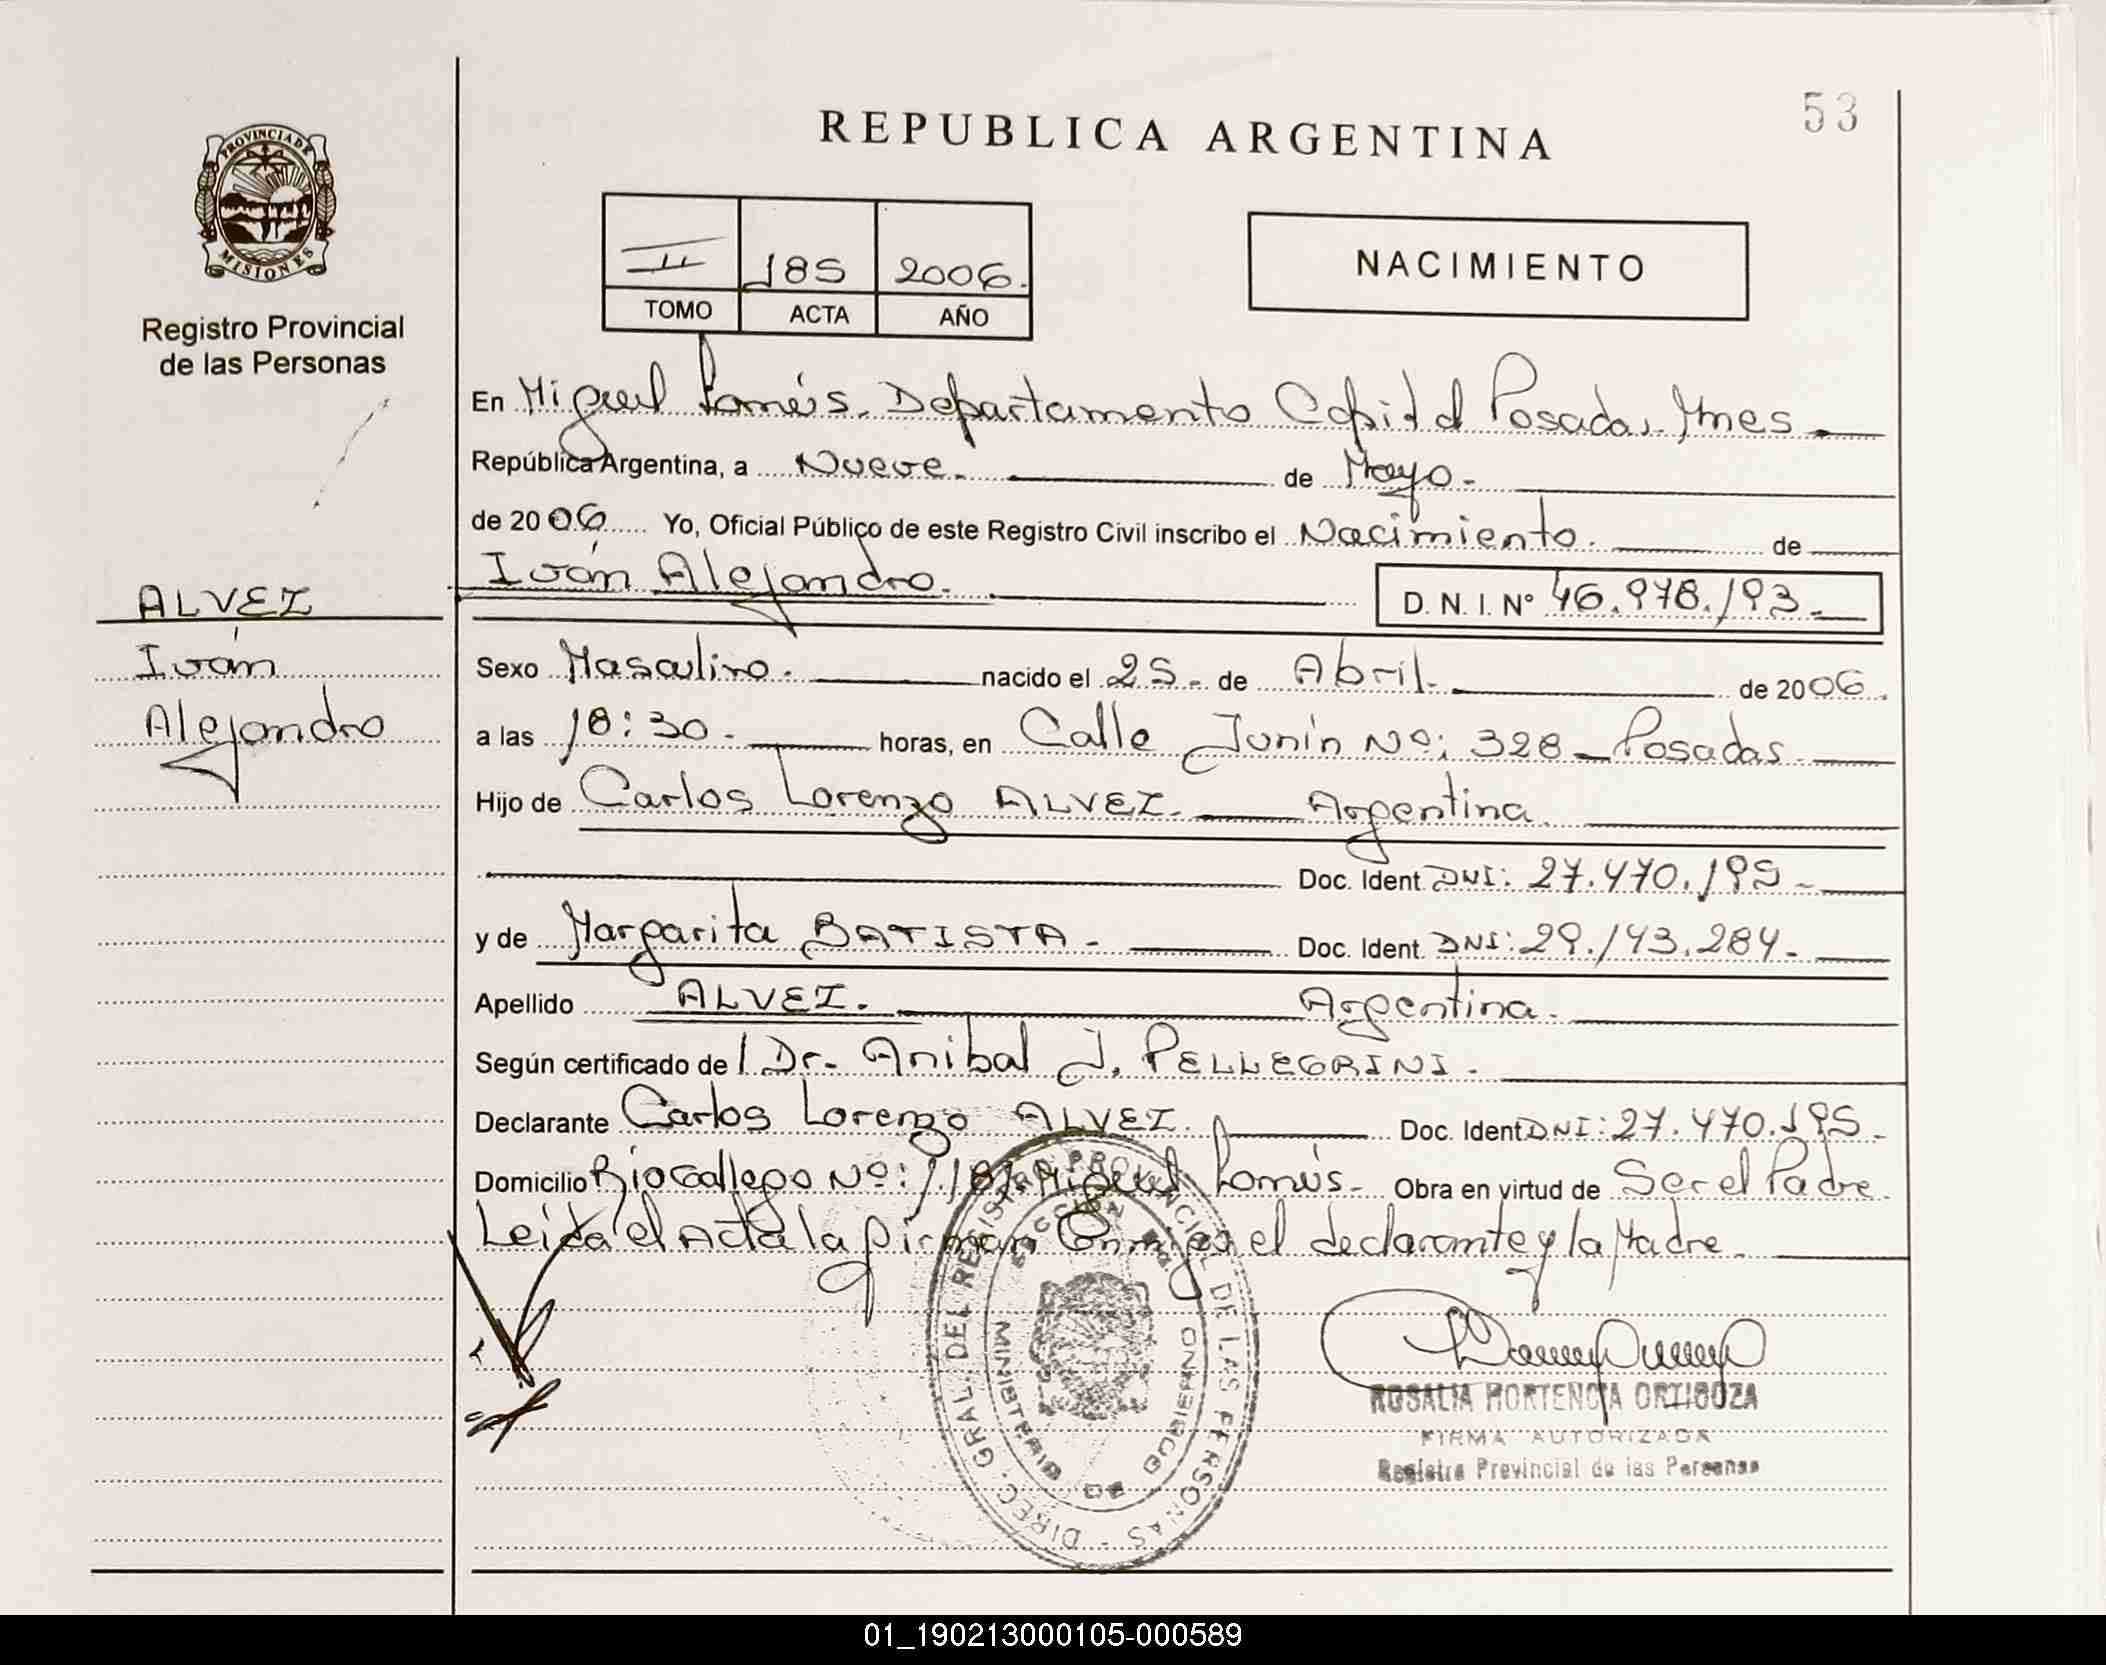 53
REPUBLICA ARGENTINA
PROVINCIA DE
MISIONES
Registro Provincial
de las Personas
II 185 2006.
TOMO ACTA AÑO
NACIMIENTO
En Miguel Lanús. Departamento Capital Posadas. Mnes
República Argentina, a Nueve. de Mayo.
de 2006 Yo, Oficial Público de este Registro Civil inscribo el Nacimiento. de
Iván Alejandro. D. N. I. Nº 46.978.193.
ALVEZ
Iván
Alejandro
Sexo Masculino. nacido el 25 de Abril. de 2006.
a las 18:30. horas, en Calle Junín Nº: 328 Posadas
Hijo de Carlos Lorenzo ALVEZ. Argentina.
Doc. Ident. DNI: 27.470.195
y de Margarita BATISTA Doc. Ident. DNI: 29.143.284
Apellido ALVEZ. Argentina.
Según certificado de l Dr. Anibal J. PELLEGRINI.
Declarante Carlos Lorenzo ALVEZ. Doc. Ident DNI: 27.470.195
Domicilio Nº: Miguel Lanús. Obra en virtud de Ser el Padre
Leída el Acta la firman Conmigo el declarante y la Madre.
DIREC. GRAL. DEL REGISTRO PROVINCIAL DE LAS PERSONAS
MINISTERIO DE GOBIERNO
ROSALIA HORTENCIA ORTIGOZA
FIRMA AUTORIZADA
Registro Provincial de las Personas
01_190213000105-000589